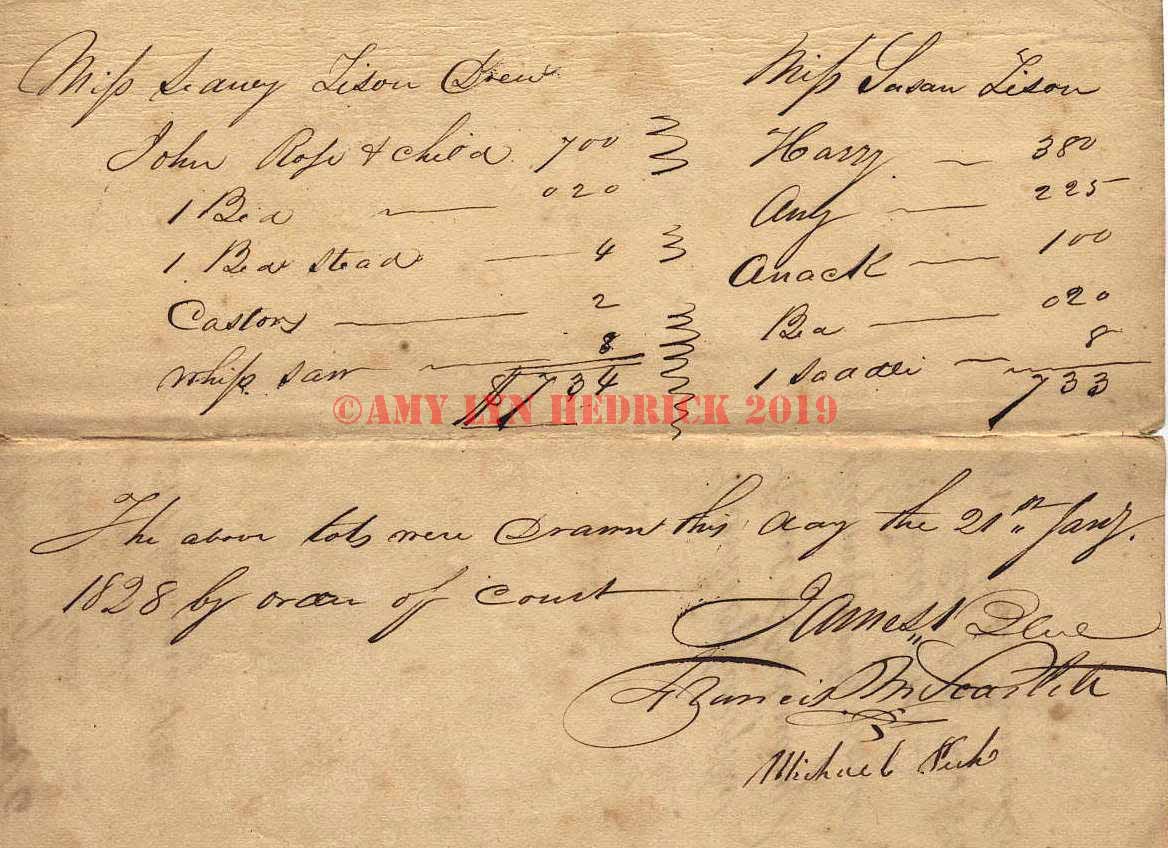 Miss Seawey Tison Drew
John Rose & child 700
1 Bed — 020
1 Bed stead — 4
Castors — 2
Whip saw — 8
$734
Miss Susan Tison
Harry — 380
Any — 225
Anack — 100
Bed — 020
1 Saddle — 8
733
©AMY LYN HEDRICK 2019
The above lots were Drawn this day the 21st Jany.
1828 by order of court
James
Francis M Scarlett
Michael